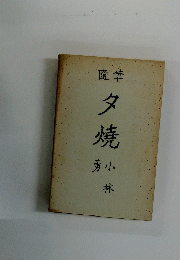 随筆
夕燒
小林勇